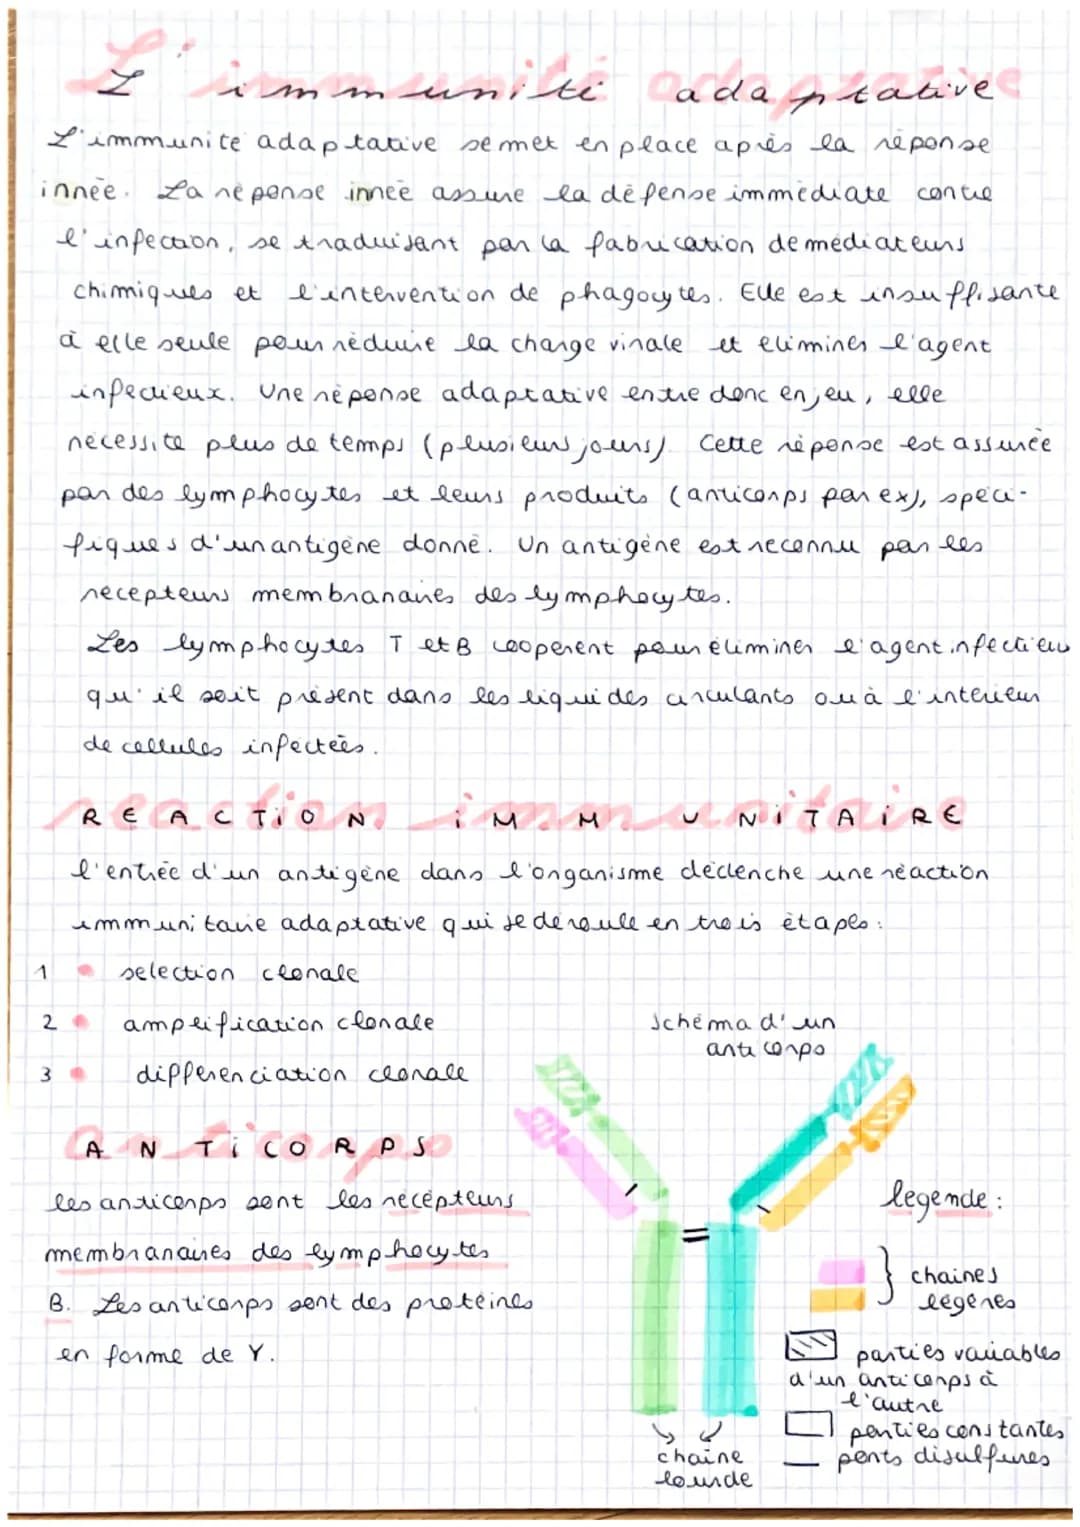 L'immunité adaptative
L'immunité adaptative se met en place après la réponse
innée. La réponse innée assure la défense immédiate contre
l'infection, se traduisant par la fabrication de médiateurs
chimiques et l'intervention de phagocytes. Elle est insuffisante
à elle seule pour réduire la charge virale et éliminer l'agent
infectieux. Une réponse adaptative entre donc en jeu, elle
nécessite plus de temps (plusieurs jours). Cette réponse est assurée
par des lymphocytes et leurs produits (anticorps par ex), spéci-
fiques d'un antigène donné. Un antigène est reconnu par les
récepteurs membranaires des lymphocytes.
Les lymphocytes T et B coopèrent pour éliminer l'agent infectieux
qu'il soit présent dans les liquides circulants ou à l'intérieur
de cellules infectées.
REACTION iMMUNiTAiRE
l'entrée d'un antigène dans l'organisme déclenche une réaction
immunitaire adaptative qui se déroule en trois étapes :
1 • sélection clonale
2 • amplification clonale
3 • différenciation clonale
schéma d'un
anticorps
ANTiCORPS
les anticorps sont les récepteurs
membranaires des lymphocytes
B. Les anticorps sont des protéines
en forme de Y.
légende :
chaines
légères
parties variables
d'un anticorps à
l'autre
parties constantes
ponts disulfures
chaîne
lourde